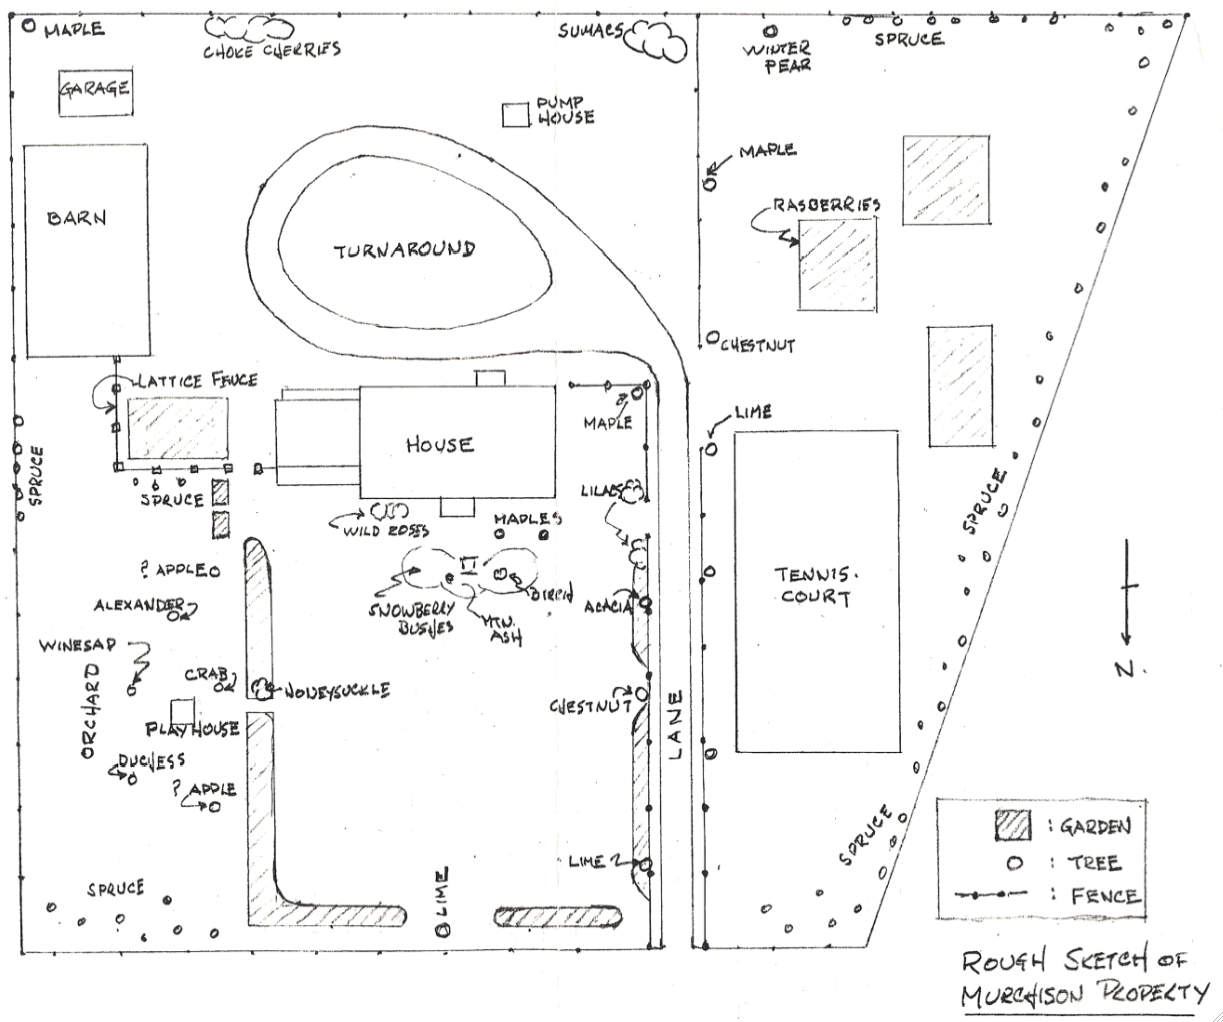 MAPLE
CHOKE CHERRIES
SUMACS
WINTER
PEAR
SPRUCE
GARAGE
PUMP
HOUSE
MAPLE
BARN
RASBERRIES
TURNAROUND
CHESTNUT
LATTICE FENCE
MAPLE
LIME
HOUSE
SPRUCE
SPRUCE
LILACS
WILD ROSES
MAPLES
SPRUCE
? APPLE
ALEXANDER
SNOWBERRY
BUSHES
MTN.
ASH
ACACIA
TENNIS.
COURT
WINESAP
ORCHARD
CRAB
HONEYSUCKLE
CHESTNUT
LANE
N.
PLAYHOUSE
DUCHESS
? APPLE
SPRUCE
LIME
LIME ?
SPRUCE
: GARDEN
: TREE
: FENCE
ROUGH SKETCH OF
MURCHISON PROPERTY